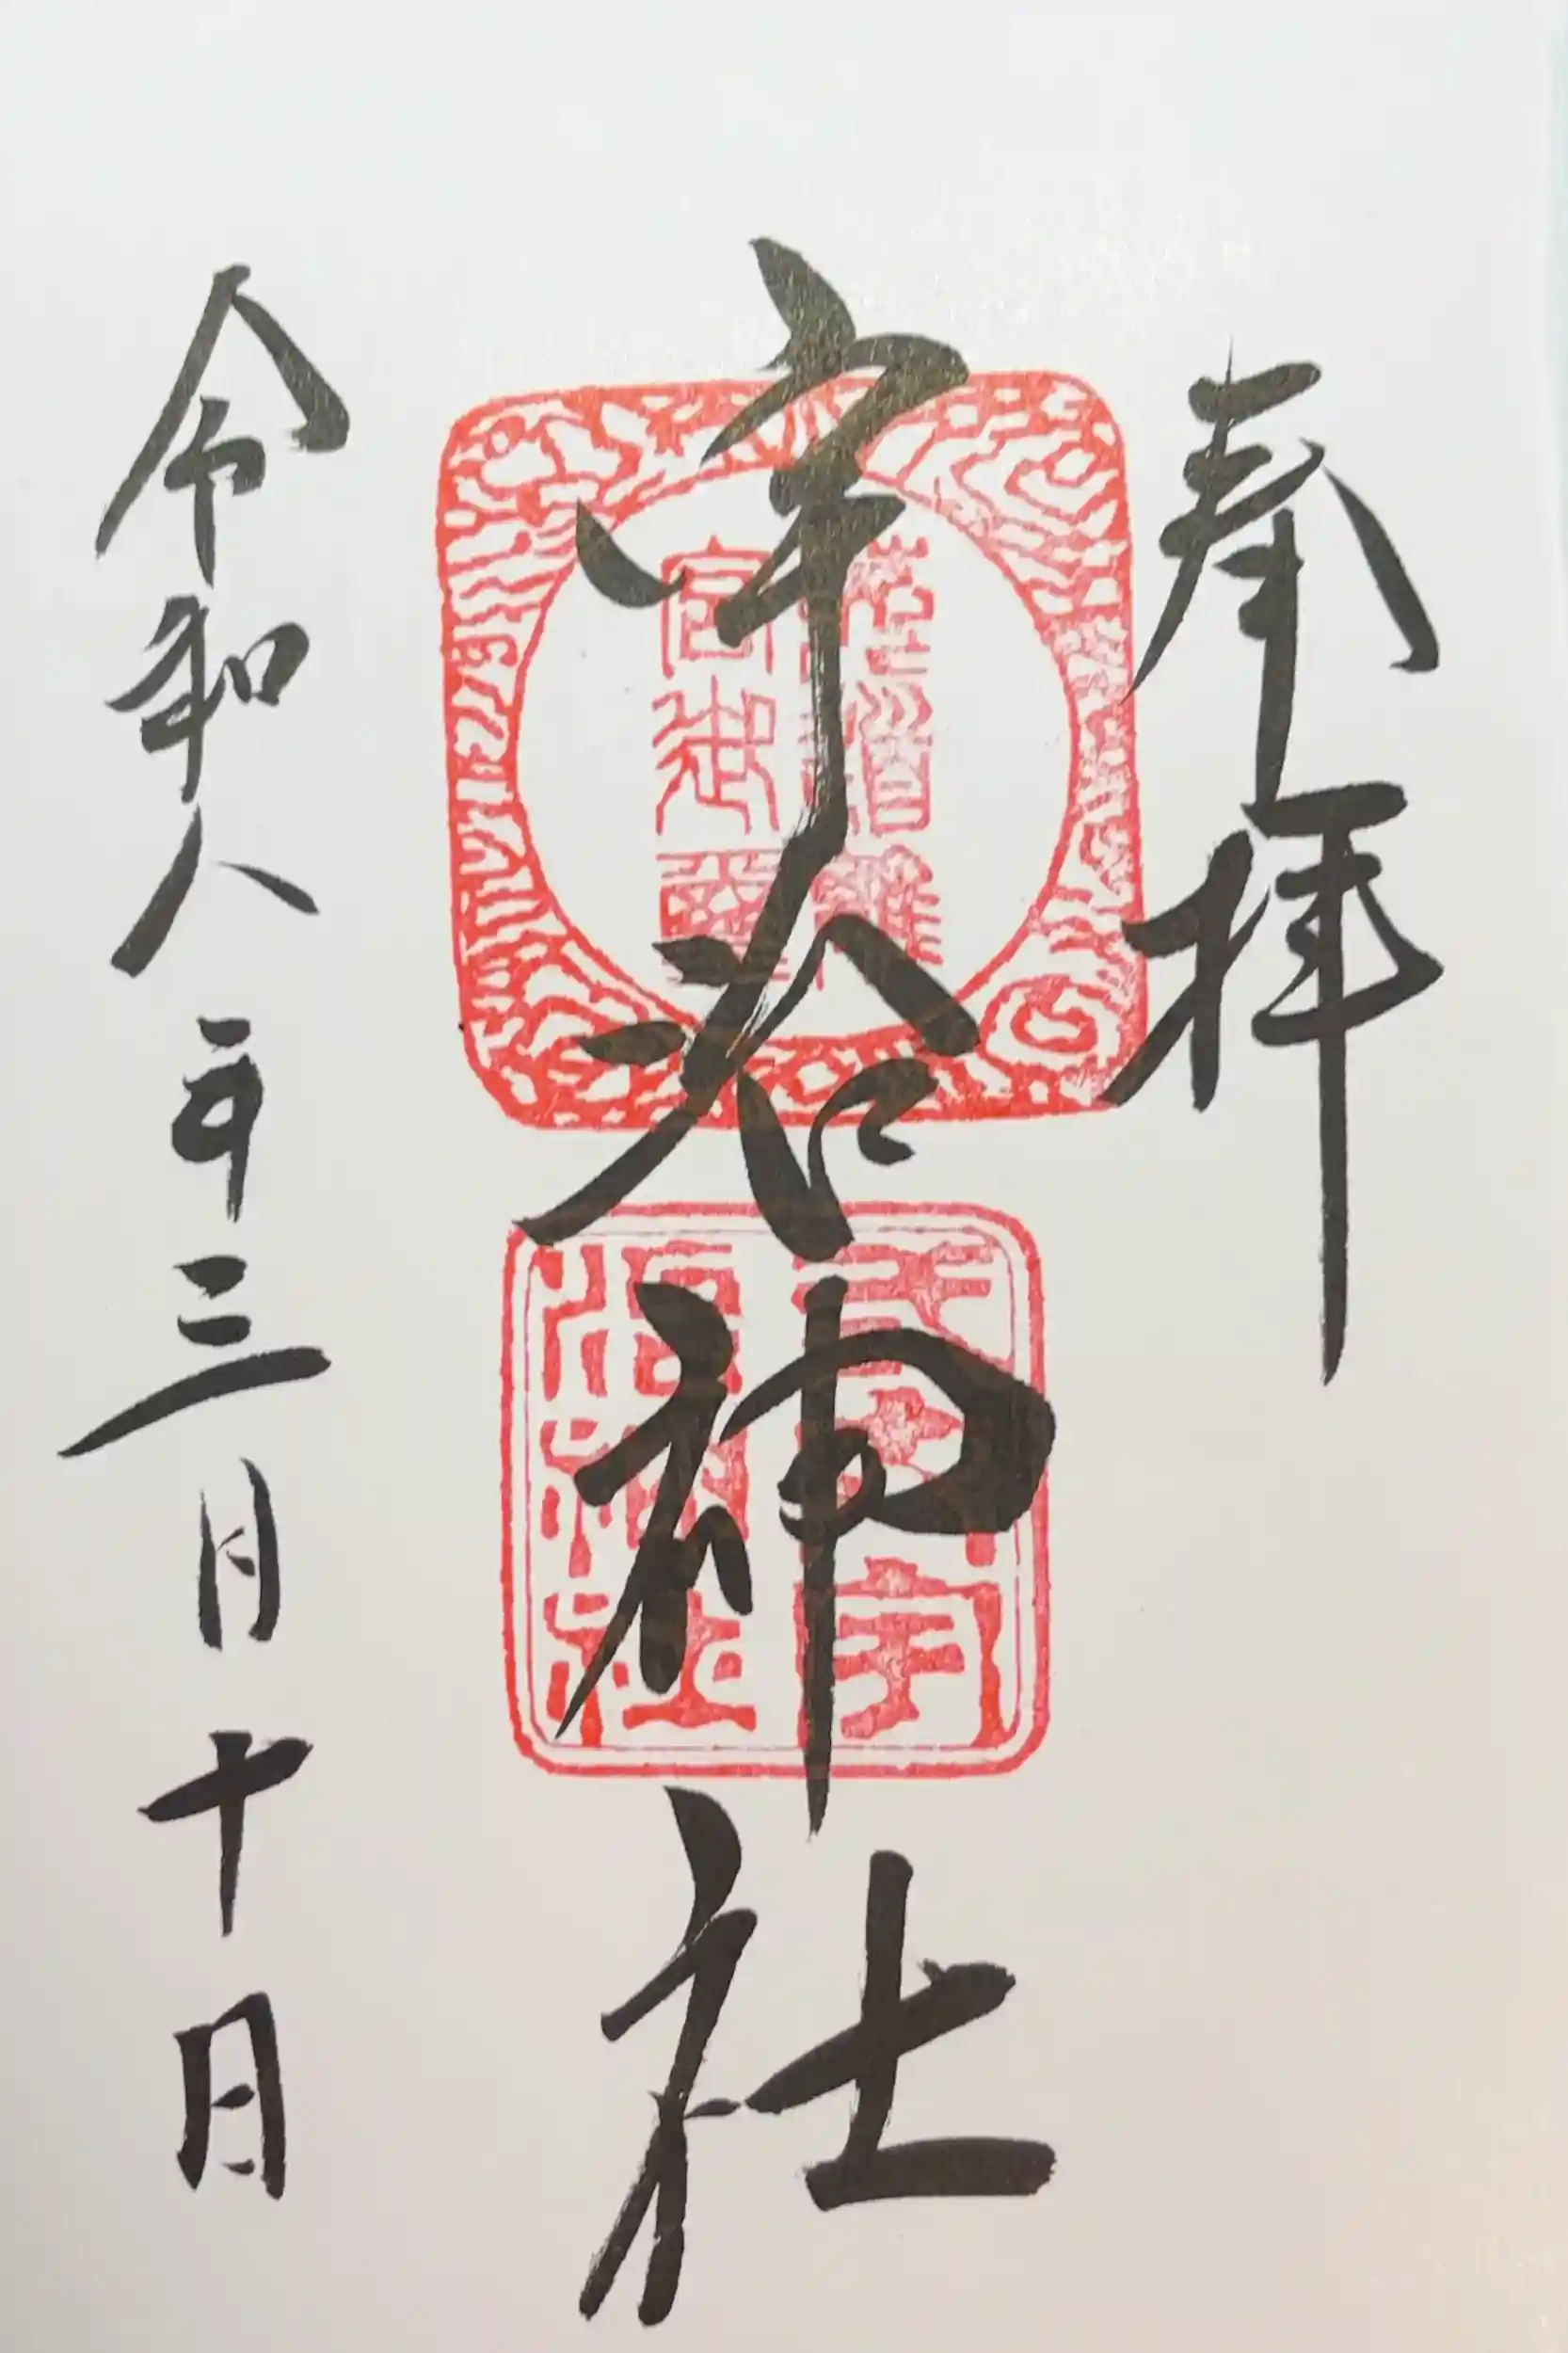 奉拝
宇治神社
令和八年三月十日
離
宮御璽
式内宇
治神社